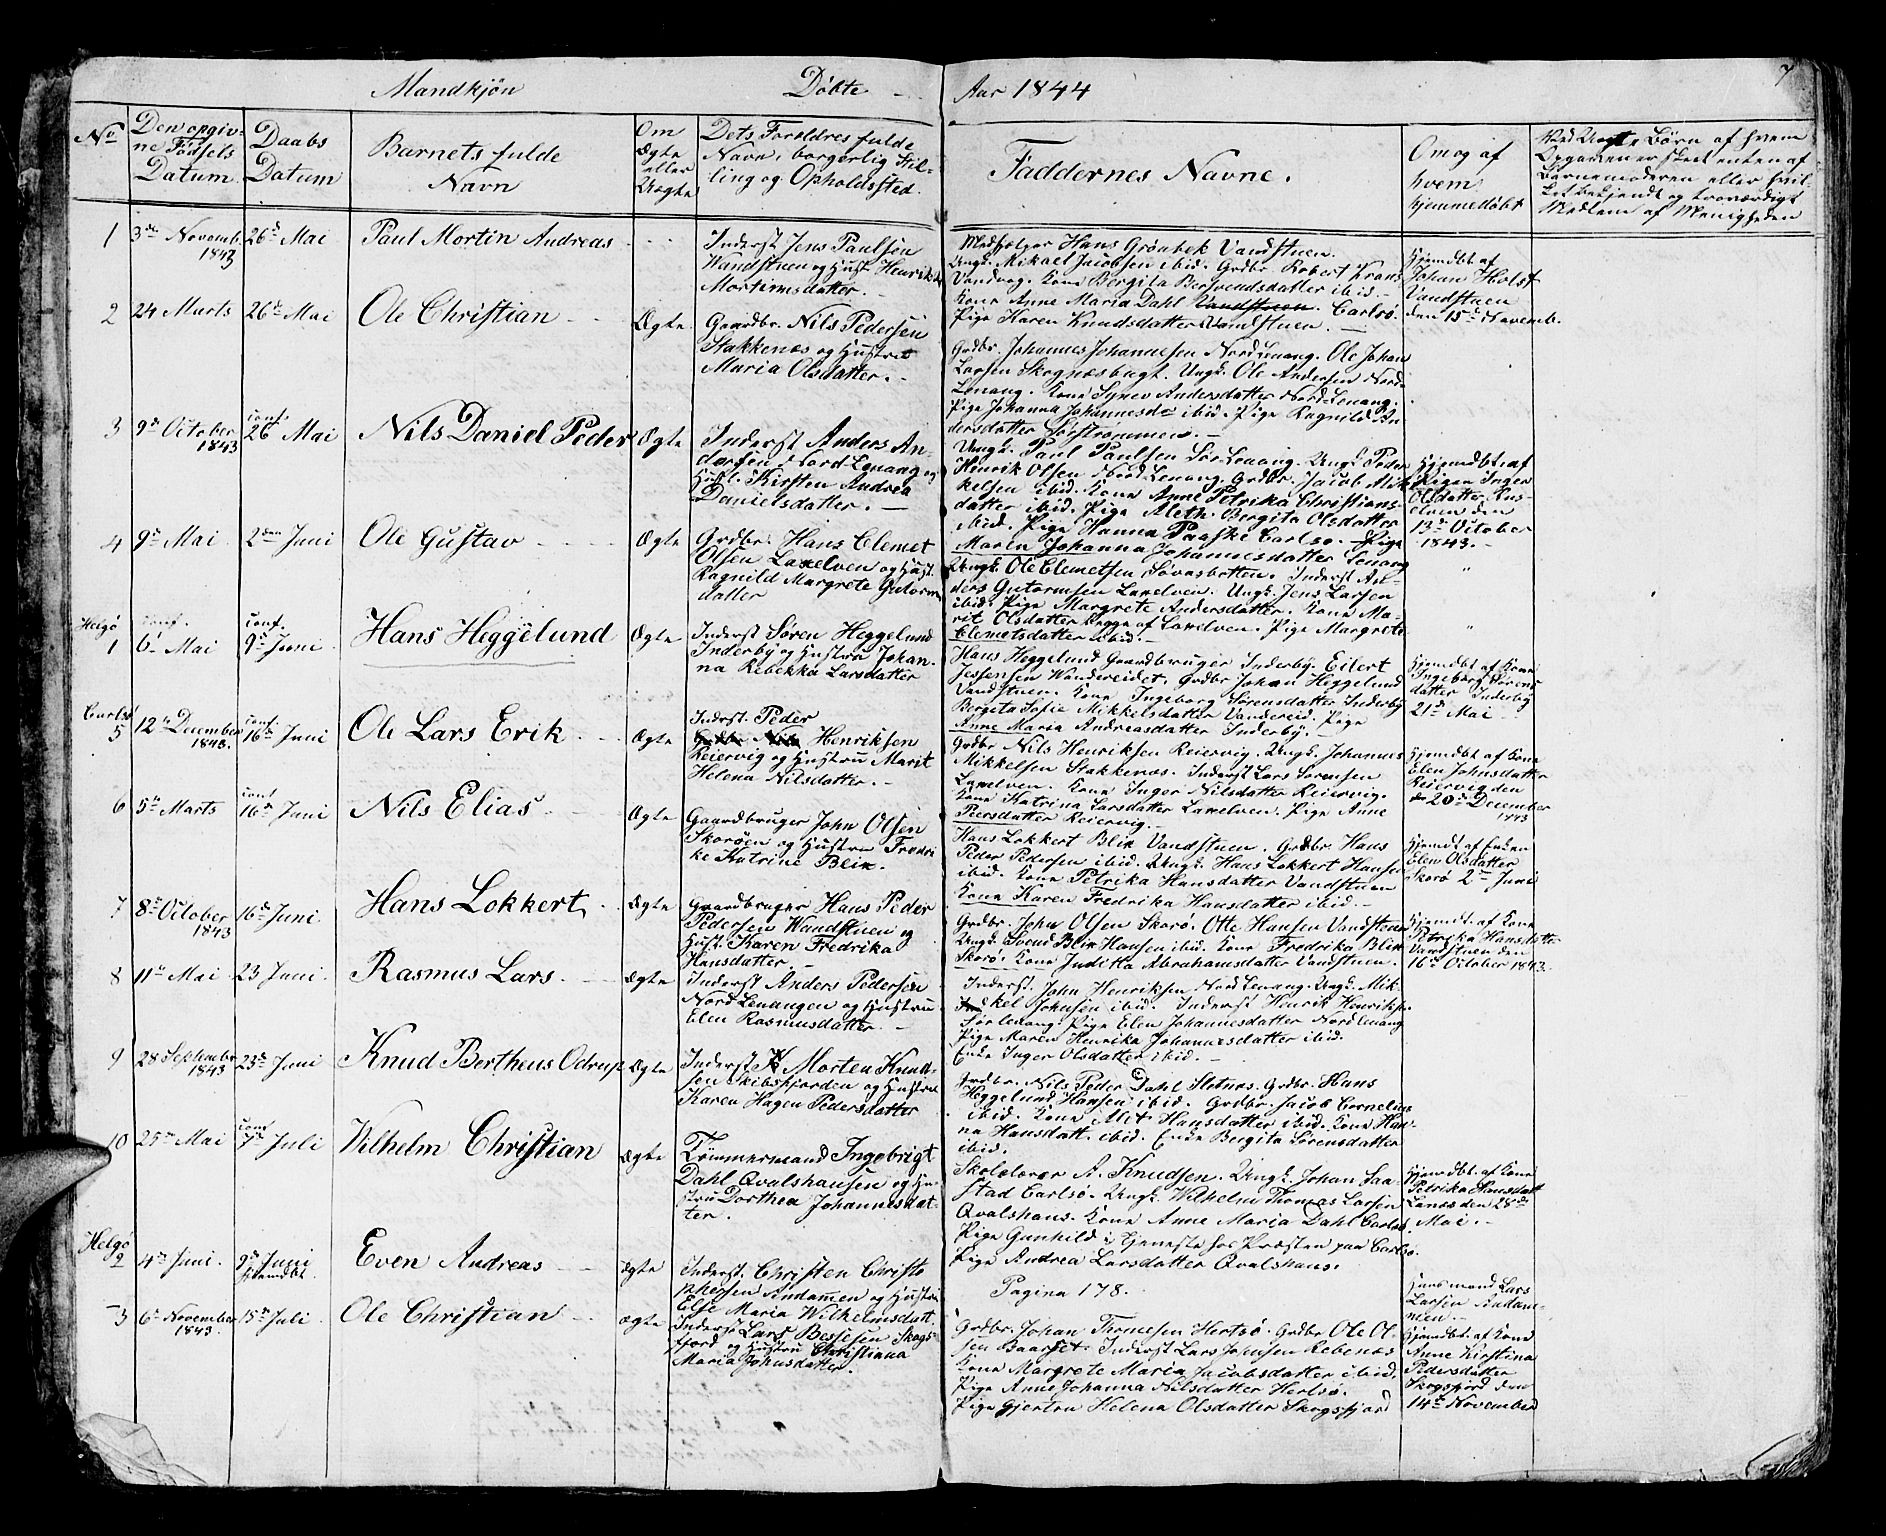 Mandkjön Döbte Aar 1844
7
No
Den opgiv-
ne Födsels
Datum
Daabs
Datum
Barnets fulde
Navn
Om
Ægte
eller
Uægte
Dets Foreldres fulde
Navn, borgerlig Stil-
ling og Opholdssted.
Faddernes Navne.
Om og af
hvem
hjemmedöbt
Ved Uægte Börn af hvem
Opgaven er skeet enten af
Barnemoderen eller hvil-
ket bekjendt og troværdigt
Medlem af Menigheden
1 3de Novemb. 1843
26d Mai
Paul Mortin Andreas
Inderst Jens Paulsen
Wandstuen og Hust. Henrikka
Mortinusdatter.
Hans Grönbek Vandstuen.
Ungk. Mikael Jacobsen ibid. Grdbr. Robert Krans
Vandvag. Kone Bergita Berhendsdatter ibid.
Kone Anne Maria Dahl Vandstuen. Carlsö.
Pige Karen Knudsdatter Vandstuen.
Hjemdbt af
Johan Holst
Vandstuen
den 15d Novemb.
2 24 Marts
26d Mai
Ole Christian
Ægte
Gaardbr. Nils Pedersen
Stakkenæs og Hustrue
Maria Olsdatter.
Grdbr. Johannes Johannesen Nord Lenang. Ole Johan
Larsen Skognæsbugt. Ungk. Ole Andersen Nord-
Lenang. Kone Synev Andersdatter Nord-Lenang.
Pige Johanna Johannesdr ibid. Pige Ragnild An
dersdatter Sörströmmen.
3 9d October 1843
conf. 26 Mai
Nils Daniel Peder
Ægte
Inderst Anders An-
dersen Nord Lenang og
Hust. Kirsten Andrea
Danielsdatter.
Ungk. Paul Paulsen Sör-Lenang. Ungk. Peder
Henrik Olsen Nord Lenang. Grdbr. Jacob Mik
kelsen ibid. Kone Anne Petrika Christians-
datter ibid. Pige Aleth. Bergita Olsdatter
ibid. Pige Hanna Paaske Carlsö. Pige
Maren Johanna Johannesdatter Lenang
Hjemdbt. af
Pigen Inger
Olsdatter Rus-
elven den
13d October
1843.
4 9d Mai
2den Juni
Ole Gustav
Ægte
Grdbr. Hans Clemet
Olsen Laxelven og Hust.
Ragnild Margrete Gutorm
datter
Ungk. Ole Clemetsen Sövasbotten. Inderst An-
ders Gutormsen Laxelven. Ungk. Jens Larsen
ibid. Pige Margrete Andersdatter. Kone Ma-
rit Olsdatter begge af Laxelven. Pige Margrete
Clemetsdatter ibid.
Helgö
1 conf. 6 Mai
conf. 9d Juni
Hans Heggelund
Ægte
Inderst Sören Heggelund
Inderby og Hustru Johan-
na Rebekka Larsdatter
Hans Heggelund Gaardbruger Inderby. Eilert
Jessensen Wandereidet. Grdbr Johan Heggelund
Vandstuen. Kone Ingeborg Sörensdatter Inderby
Bergita Sofie Mikkelsdatter Vandereid. Pige
Anne Maria Andreasdatter Inderby.
Hjemdbt af Kone
Ingeborg Sörens
datter Inderby
21d Mai
Carlsö
5 12te December 1843.
conf. 16d Juni
Ole Lars Erik
Ægte
Inderst. Peder
Henriksen
Reiervig og Hustru Marit
Helena Nilsdatter.
Grdbr Nils Henriksen Reiervig. Ungk. Johannes
Mikkelsen Stakkenæs. Inderst Lars Sörensen
Laxelven. Kone Inger Nilsdatter Reiervig.
Kone Katrina Larsdatter Laxelven. Pige Anne
Peersdatter Reiervig.
Hjemdbt af Kone
Elen Johnsdatter
Reiervig den
20d December
1843
6 5te Marts
conf 16d Juni
Nils Elias
Ægte
Gaardbruger John Olsen
Skoröen og Hustru Fredri
ke Katrine Blix.
Hans Lokkert Blix Vandstuen. Grdbr. Hans
Peder Pedersen ibid. Ungk. Hans Lokkert Hansen
ibid. Kone Petrika Hansdatter Vandstuen
Kone Karen Fredrika Hansdatter ibid.
Hjemdt af Enken
Elen Olsdatter
Skorö 2den Juni
7 8de October 1843
16d Juni
Hans Lokkert
Ægte
Gaardbruger Hans Peder
Pedersen Wandstuen og
Hust. Karen Fredrika
Hansdatter.
Grdbr. John Olsen Skorö. Otte Hansen Vandstuen
Ungk. Svend Blix Hansen ibid. Kone Fredrika Blix
Skorö. Kone Juditta Abrahamsdatter Vandstuen.
Hjemdt. af Kone
Petrika Hansdatter
Vandstuen den
16d October 1843.
8 11te Mai
23 Juni
Rasmus Lars
Ægte
Inderst Anders Pedersen
Nord Lenangen og Hustru
Elen Rasmusdatter.
Inderst. John Henriksen Nord Lenang. Ungk. Mik
kel Johnsen ibid. Inderst Henrik Henriksen
Sörlenang. Pige Elen Johannesdatter Nordlenang
Pige Maren Henrika Johannesdatter ibid.
Enke Inger Olsdatter ibid.
9 28 September 1843
23d Juni
Knud Bertheus Odrup
Ægte
Inderst Morten Knud-
sen Skibsfjorden og Hustru
Karen Hagen Pedersdatter
Grdbr. Nils Peder Dahl Sletnes. Grdbr. Hans
Heggelund Hansen ibid. Grdbr. Jacob Cornelius
ibid. Kone Alet Hansdatter ibid. Kone Han-
na Hansdatt. ibid. Enke Bergita Sörensdatter
ibid.
10 25de Mai
conf 7de Juli
Wilhelm Christian
Ægte
Tömmermand Ingebrigt
Dahl Qvalshausen og Hu-
stru Dorthea Johannesdat-
ter.
Skolelærer A. Knudsen. Ungk. Johan Saa-
stad Carlsö. Ungk. Wilhelm Thomas Larsen
Qvalshaus. Kone Anne Maria Dahl Carlsö
Pige Gunhild i Tjeneste hos Præsten paa Carlsö.
Pige Andrea Larsdatter Qvalshaus.
Hjemdbt. af Kone
Petrika Hansdatt
Lanæs den 28d
Mai.
Helgö
2 4de Juni
9de Juni
hjemdbt.
Even Andreas
Ægte
Inderst. Christen Christo
phersen Andamen og Hustru
Else Maria Wilhelmsdatt
Pagina 178.
Huusmand Lars
Larsen Andam-
men.
3 6te November 1843.
15de Juli
Ole Christian
Ægte
Inderst Lars Bessesen Skogs-
fjord og Hustru Christiana
Maria Johnsdatter.
Grdbr. Johan Thomesen Hertsö. Grdbr Ole Ol-
sen Baarset. Inderst Lars Johnsen Rebenæs
Kone Margrete Maria Jacobsdatter ibid.
Pige Anne Johanna Nilsdatter Hertsö.
Pige Gjertru Helena Olsdatter Skogsfjord
Hjemdbt. af Kone
Anne Kirstina
Pedersdatter
Skogsfjord den
14de November